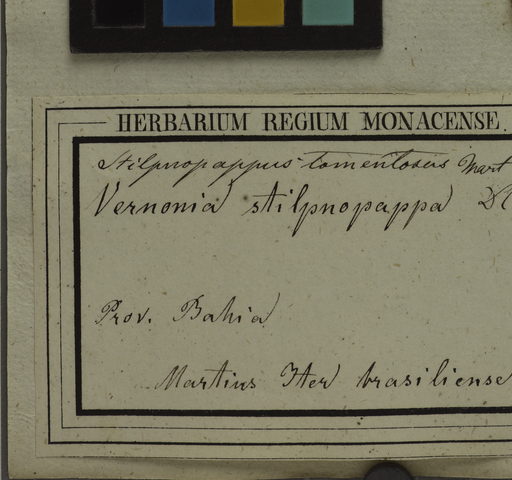 HERBARIUM REGIUM MONACENSE.
Stilpnopappus tomentosus Mart
Vernonia stilpnopappa DC
Prov. Bahia
Martius Iter brasiliense